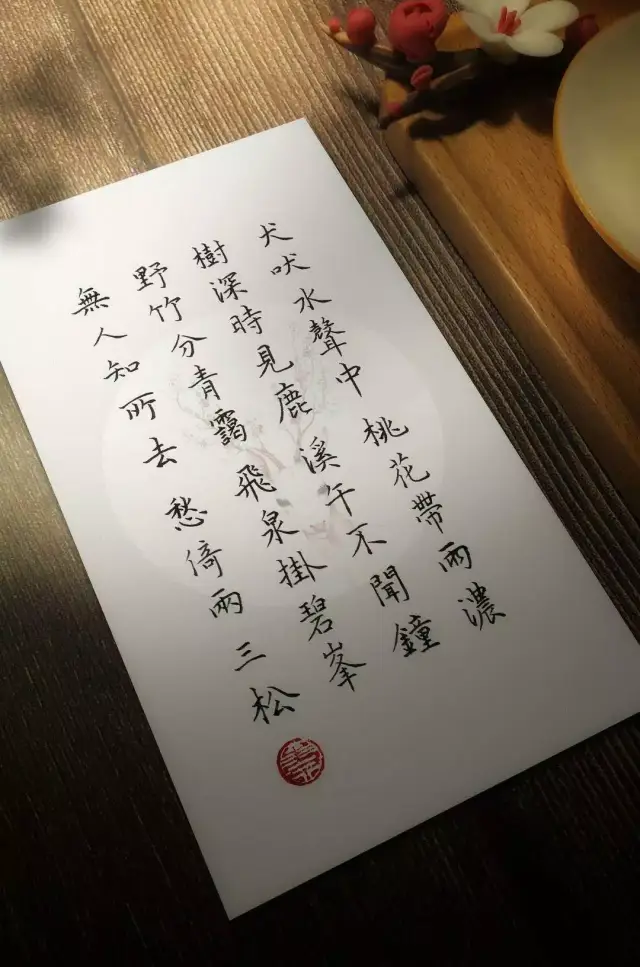 犬吠水聲中 桃花帶雨濃
樹深時見鹿 溪午不聞鐘
野竹分青靄 飛泉掛碧峯
無人知所去 愁倚兩三松